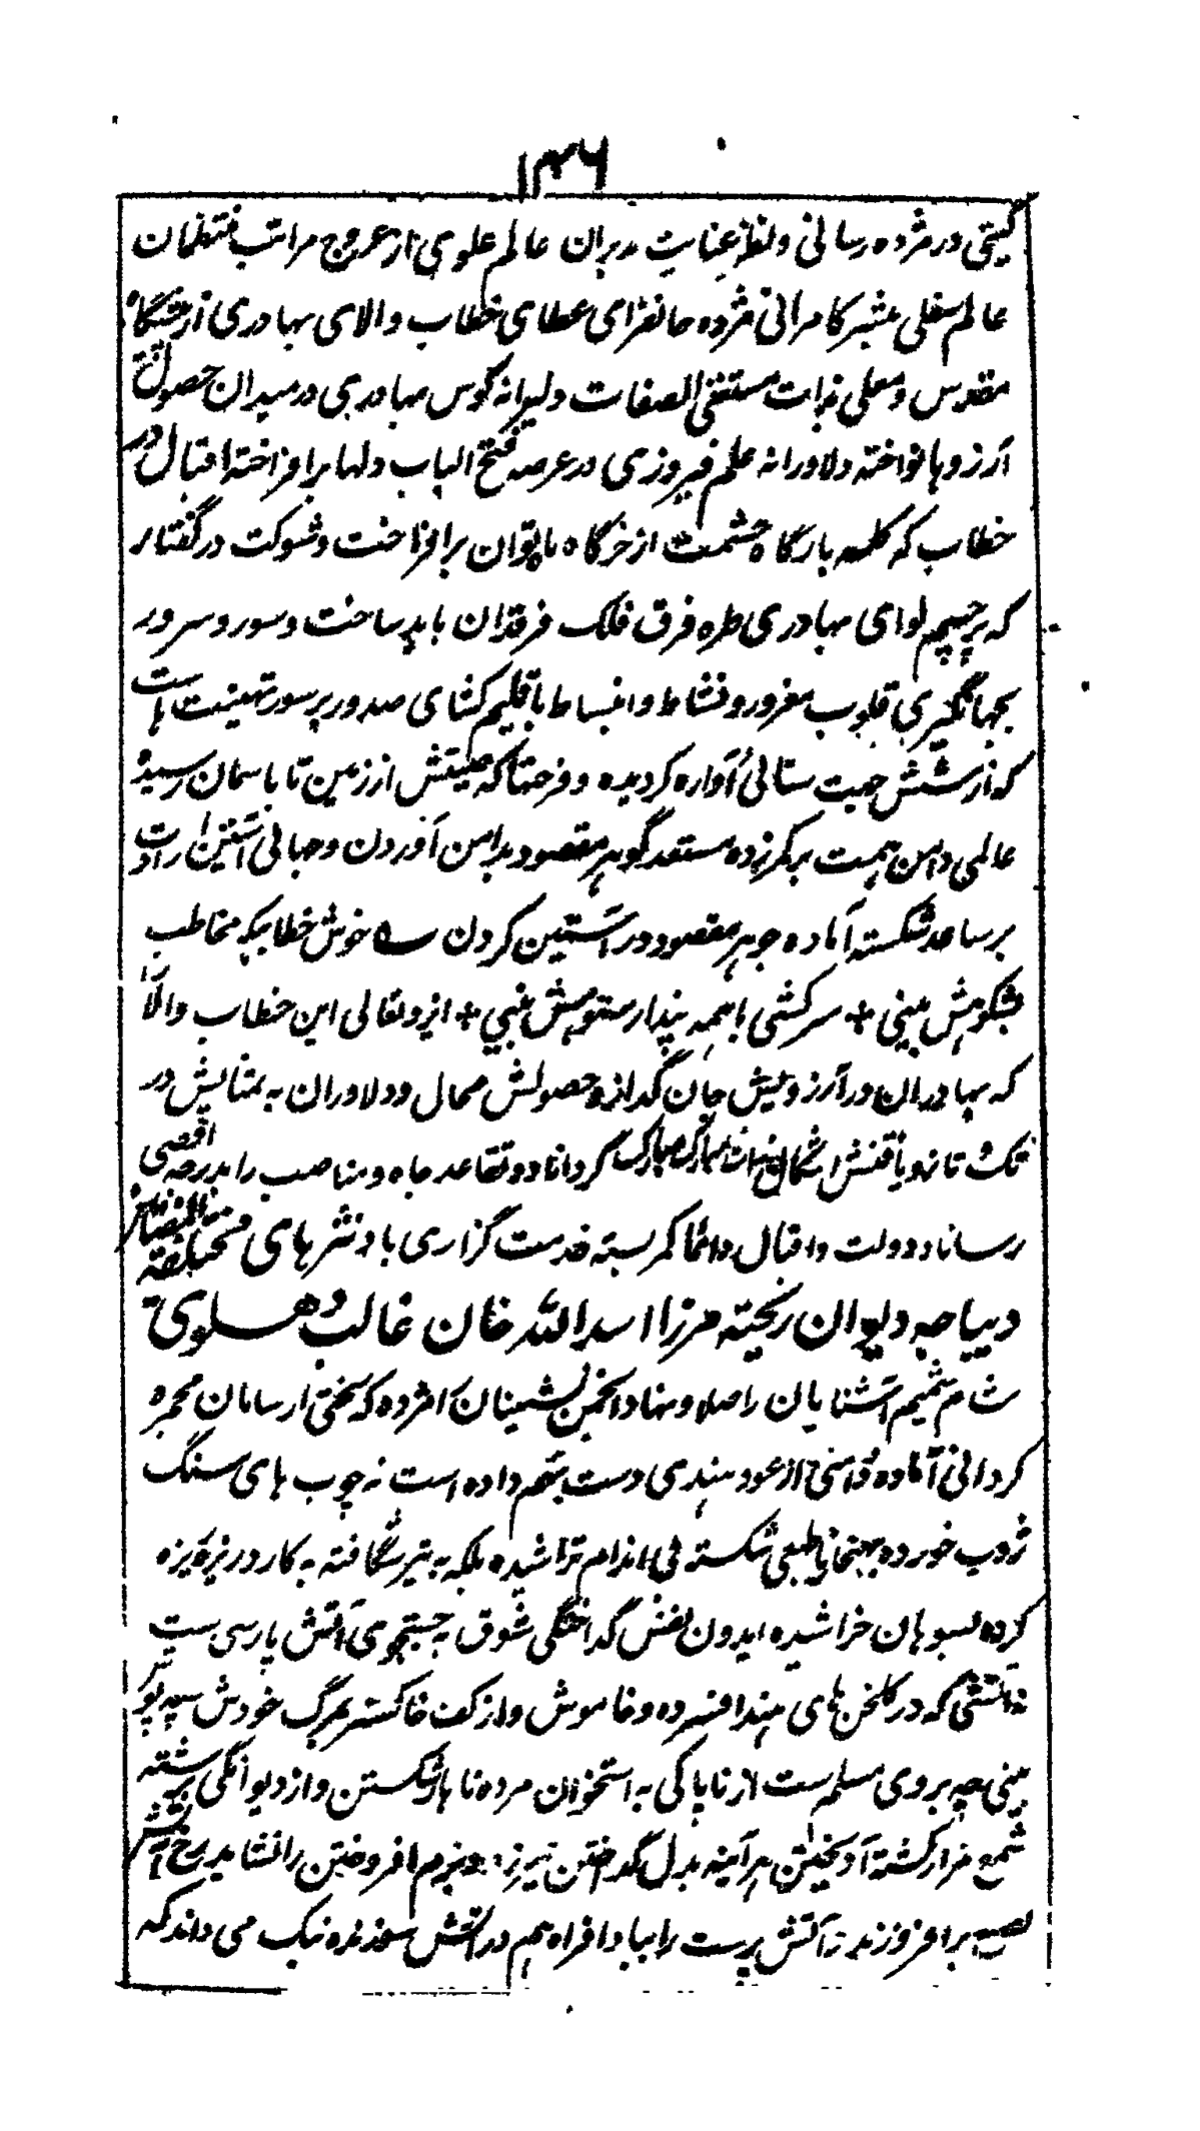 ۱۳۶
گیتی در مژده رسانی و لفظ عنایت مدبران عالم علوی از عروج مراتب منتظمان
عالم سفلی مبشر کامرانی مژده جانفزای عطای خطاب والای بهادری از
مقدس و معلی بذات مستغنی الصفات دلیرانه کوس بهادری در میدان حصول
آرزوها نواخته دلاورانه علم فیروزی در عرصه فتح الباب دلها برافراخته اقبال در
خطاب که کلمه بارگاه حشمت از خرگاه با توان برافراخت و شوکت در گفتار
که پرچم لوای بهادری طره فرق فلک فرقدان باید ساخت و سور و سرور
بجهانگیری قلوب مغرور و نشاط و انبساط باقلیم کشای صدور پرسور تهنیت هاست
که از شش جهت ستائی آواره کردیده و فرحتها که صیتش از زمین تا باسمان رسید و
عالمی دامن همت برکمر زده مستعد گوهر مقصود بدامن آوردن و جهانی آستین ارادت
بر ساعد شکسته آماده جوهر مقصود در آستین کردن ؎ خوش خطابیکه مخاطب
بشکوهش بینی + سرکشی با همه پندار ستوهش بینی + ایزد تعالی این خطاب والا را
که بهادران در آرزویش جان گداز و حصولش محال و دلاوران به تمنایش در
تک و تاز و یافتنش اشکال مبارک مبارک گرداناد و تقاعد جاه و مناصب را بدرجه اقصی
رساناد و دولت و اقبال دائما کمر بسته خدمت گزاری باد نثرهای مختلفه
دیباجه دیوان ریخته مرزا اسد اللّه خان غالب دهلوی
مشام شمیم آشنایان را صلا و نهاد انجمن نشینان را مژده که لختی از سامان مجمره
کردانی آماده و دامنی از عود هندی دست بهم داده است نه چوب های سنگ
ژوب خورده بهنجار نا طبعی شکسته بی اندام تراشیده بلکه به تبر شگافته به کارد ریزه ریزه
کرده بسوهان خراشیده ایدون نفس گداختگی شوق به جستجوی آتش پارسی ست
نه آتشی که در گلخن های هند افسرده و خاموش و از کف خاکستر بمرگ خودش سیه پوش
بینی چه بروی مسلم ست از ناپاکی به استخوان مرده ناهار شکستن و از دیوانگی برشته
شمع مزار کشته آویختن هر آینه بدل گداختن نیرزد و بزم افروختن را نشاید رخ آتش
بصنع برافروزنده و آتش پرست را بباد افراه هم در آتش سوزنده نیک می داند که